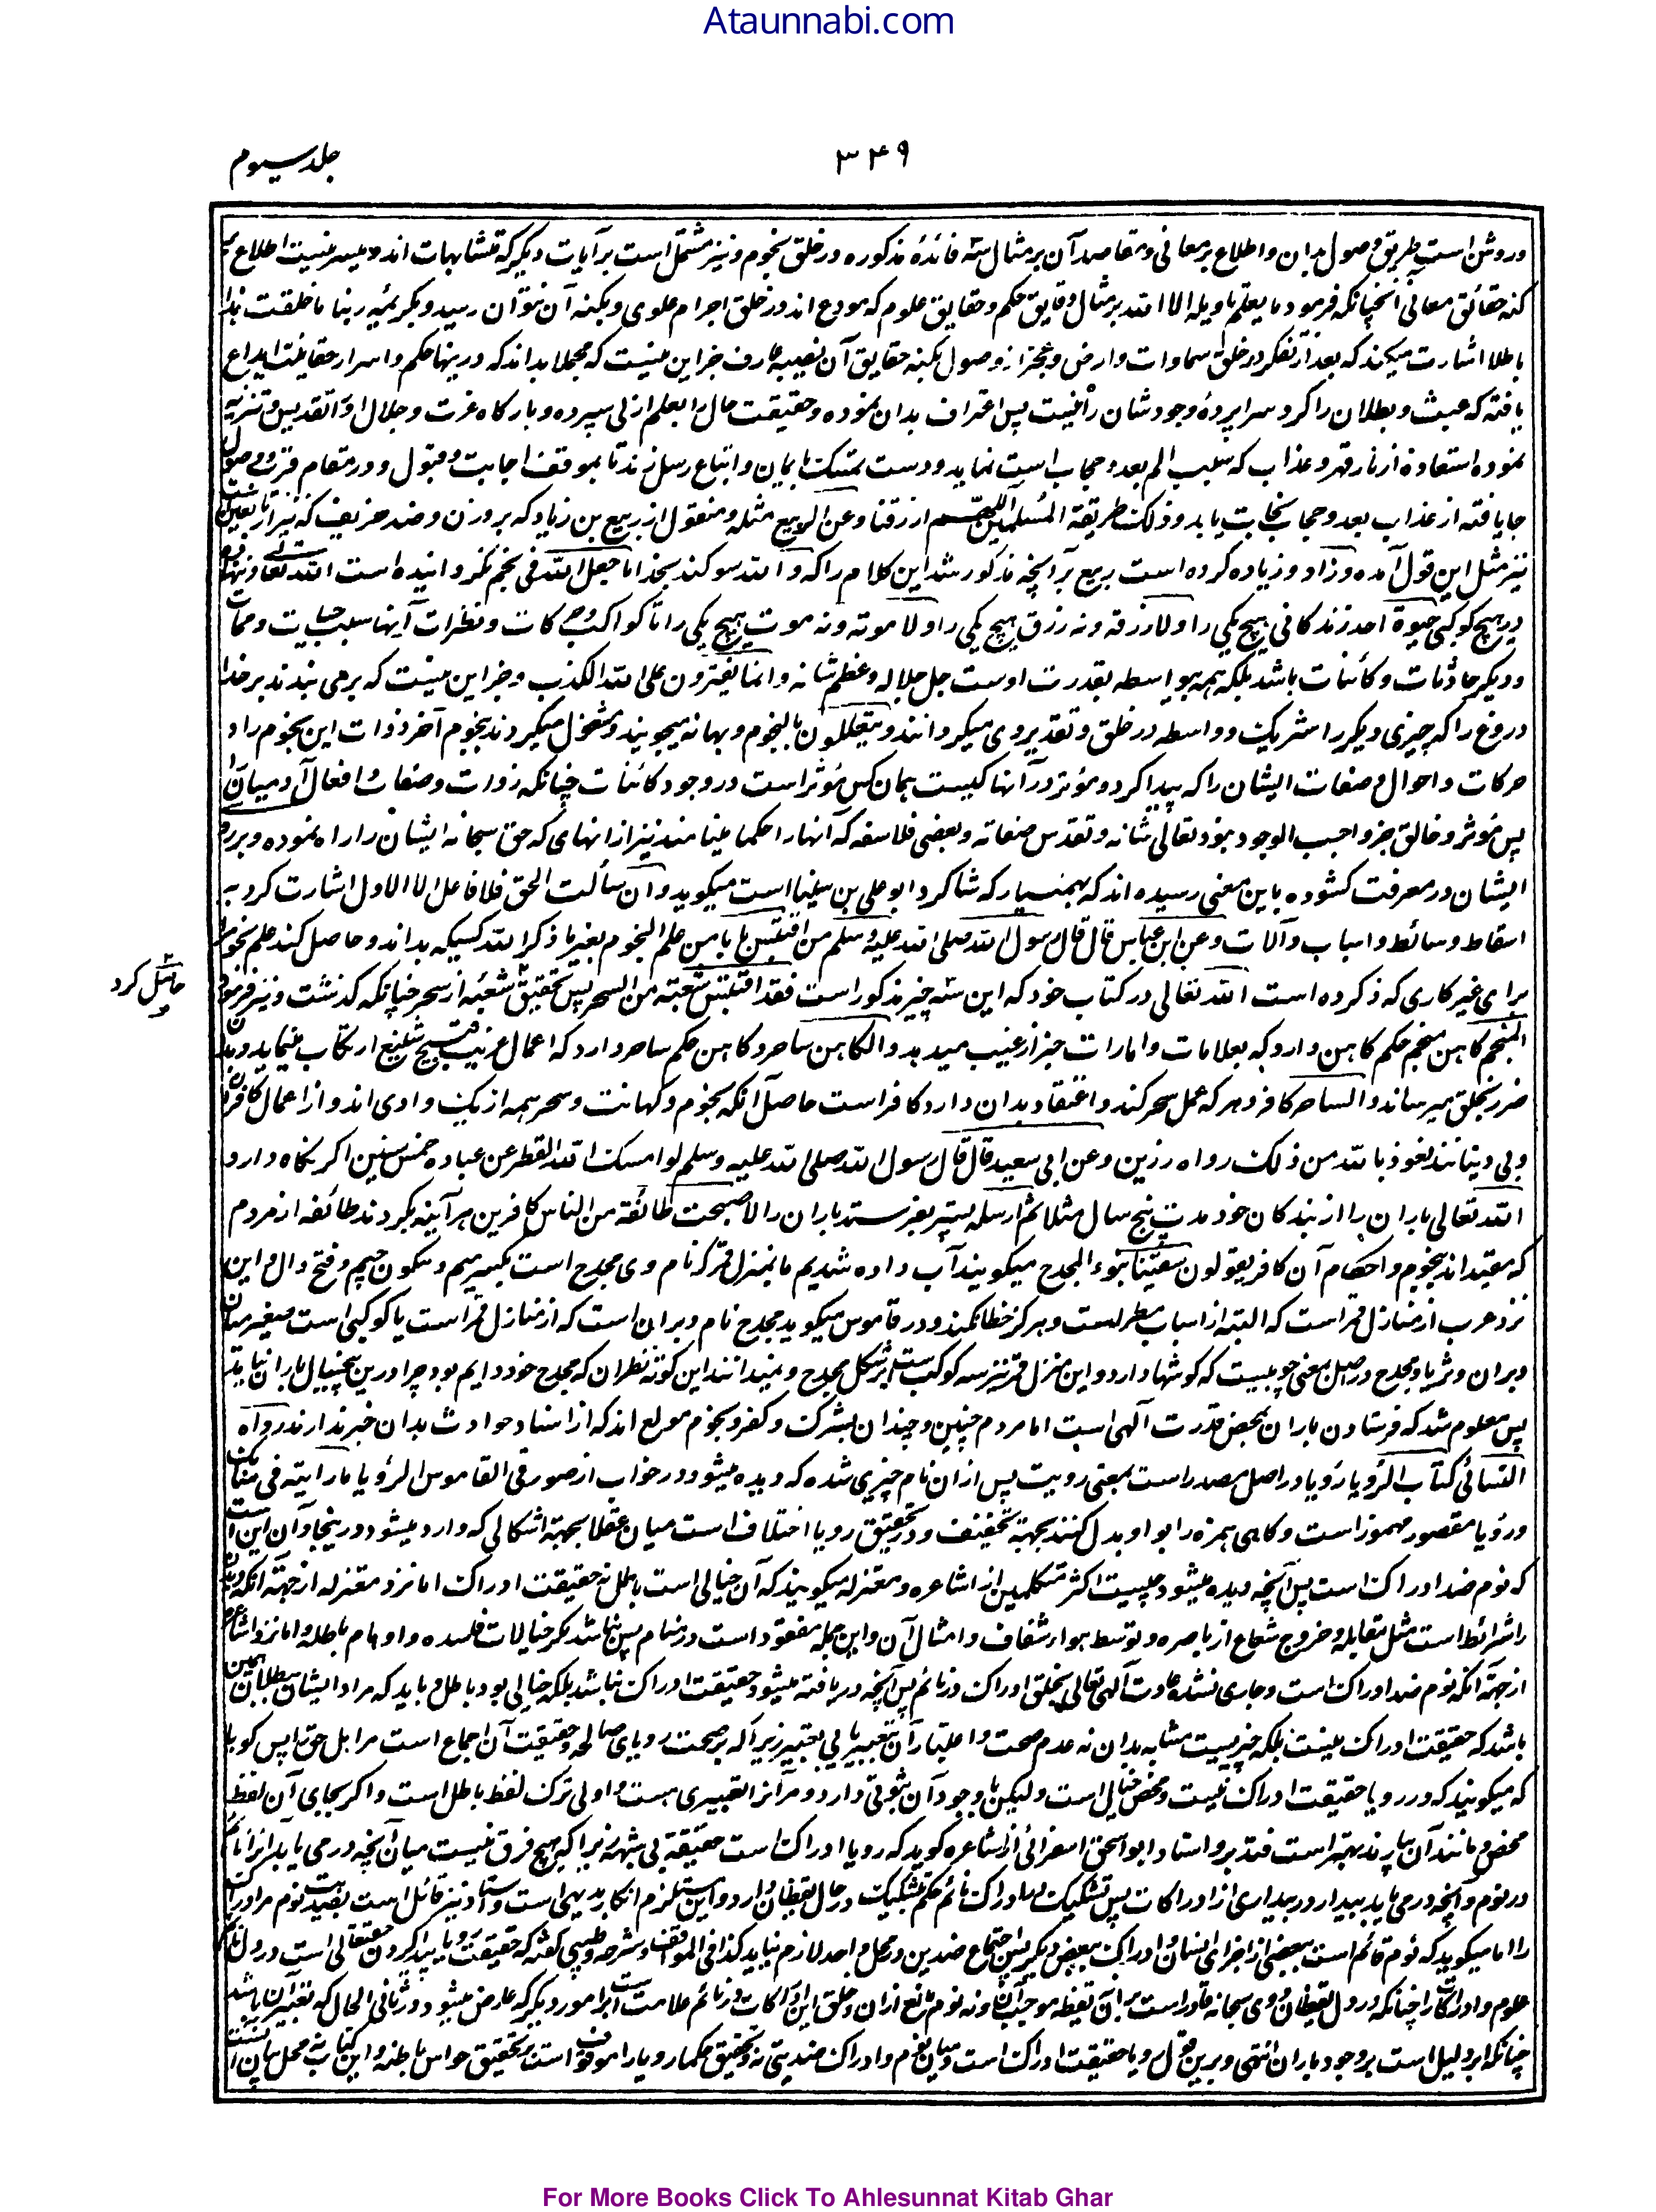 Ataunnabi.com
۳۴۹
جلد سیوم
وروشن است طریق وصول بدان واطلاع بر معانی ومقاصد آن بر مثال سه فائدۀ مذکوره در خلق نجوم ونیز مشتمل است بر آیات دیگر که متشابهات اند ومیسر نیست اطلاع بر
کنه حقائق معانی آنچنانکه فرمود ما یعلم تاویله الا الله بر مثال دقایق حکم وحقایق علوم که مودع اند در خلق اجرام علوی وبکنه آن نتوان رسید وبکریمه ربنا ما خلقت هذا
باطلا اشارت میکند که بعد از تفکر در خلق سماوات وارض وعجز از وصول بکنه حقایق آن نصیبه عارف جز این نیست که مجملا بداند که درینها حکم واسرار حقانیت ابداع
یافته که عبث وبطلان را گرد سراپردۀ وجود شان راه نیست پس اعتراف بدان نموده وحقیقت حال را بعلم ازلی سپرده وبارگاه عزت وجلال او را تقدیس وتنزیه
نموده استعاذه از نار قهر وعذاب که سبب الم بعد وحجاب است نماید ودست تمسک بایمان واتباع رسل زند تا بموقف اجابت وقبول ودر مقام قرب ووصول
جا یافته از عذاب بعد وحجاب نجات یابد وذلک طریقة المسلمین اللهم ارزقنا وعن الربیع مثله ومنقول از ربیع بن زیاد که بر وزن وضد خریف که نیز از تابعین است
نیز مثل این قول آمده وزاد وزیاده کرده است ربیع بر آنچه مذکور شد این کلام را که والله سوگند بخدا ما جعل الله فی نجم نگردانیده است الله تعالی ونهاده
در هیچ کوکبی حیوة احد زندگانی هیچ یکی را ولا رزقه ونه رزق هیچ یکی را ولا موته ونه موت هیچ یکی را تا کواکب وحرکات ونظرات آنها سبب حیات وممات
ودیگر حادثات وکائنات باشد بلکه همه بیواسطه بقدرت اوست جل جلاله وعظم شانه وانما یفترون علی الله الکذب وجز این نیست که برمی بندند بر خدا
دروغ را که چیزی دیگر را شریک وواسطه در خلق وتقدیر وی میگردانند ویتعللون بالنجوم وبهانه میجویند ومشغول میگردند بنجوم آخر ذوات این نجوم را و
حرکات واحوال وصفات ایشان را که پیدا کرد وموثر در آنها کیست همان کس موثر است در وجود کائنات چنانکه ذوات وصفات وافعال آدمیان را
پس موثر وخالق جز واجب الوجود نبود تعالی شانه وتقدس صفاته وبعضی فلاسفه که آنها را حکما مینامند نیز از آنهای که حق سبحانه ایشان را راه نموده وبر روی
ایشان در معرفت کشوده باین معنی رسیده اند که بهمنیار که شاگرد ابو علی بن سینا است میگوید وان سألت الحق فلا فاعل الا الاول اشارت کرد به
اسقاط وسائط واسباب وآلات وعن ابن عباس قال قال رسول الله صلی الله علیه وسلم من اقتبس بابا من علم النجوم بغیر ما ذکر الله کسیکه بداند وحاصل کند علم نجوم را
برای غیر کاری که ذکر کرده است الله تعالی در کتاب خود که این سه چیز مذکور است فقد اقتبس شعبة من السحر پس تحقیق شعبۀ از سحر چنانکه گذشت ونیز فرمود
حاصل کرد
المنجم کاهن منجم حکم کاهن دارد که بعلامات وامارات خبر از غیب میدهد والکاهن ساحر وکاهن حکم ساحر دارد که اعمال غریب قبیح شنیع ارتکاب مینماید وبدان
ضرر بخلق میرساند والساحر کافر وهر که عمل سحر کند واعتقاد بدان دارد کافر است حاصل آنکه نجوم وکهانت وسحر همه از یک وادی اند واز اعمال کافران
وبی دینانند نعوذ بالله من ذلک رواه رزین وعن ابی سعید قال قال رسول الله صلی الله علیه وسلم لو امسک الله القطر عن عباده خمس سنین اگر نگاه دارد
الله تعالی باران را از بندگان خود مدت پنج سال مثلا ثم ارسله پستر بفرستد باران را لاصبحت طائفة من الناس کافرین هر آینه بگردند طائفه از مردم
که مقید اند بنجوم واحکام آن کافر یقولون سقینا بنوء المجدح میگویند آب داده شدیم ما بمنزل قمر که نام وی مجدح است بکسر میم وسکون جیم وفتح دال واین
نزد عرب از منازل قمر است که البته از اسباب مطر است وهرگز خطا نکند ودر قاموس میگوید مجدح نام دبران است که از منازل قمر است یا کوکبی است صغیر میان
دبران وثریا ومجدح در اصل معنی چوبیست که گوشها دارد واین منزل قمر نیز سه کوکب است بر شکل مجدح ونمیدانند این کوته نظران که مجدح خود دایم بود چرا درین پنجسال باران نیامد
پس معلوم شد که فرستادن باران بمحض قدرت آلهی است اما مردم چنین وچندان بشرک وکفر ونجوم مولع اند که از اسناد حوادث بدان خبر ندارند رواه
النسائی کتاب الرؤیا رؤیا در اصل مصدر است بمعنی رویت پس ازان نام چیزی شده که دیده میشود در خواب از صور فی القاموس الرؤیا ما رایته فی منامک
ورؤیا مقصور مهموز است وگاهی همزه را بواو بدل کنند بجهة تخفیف ودر تحقیق رویا اختلاف است میان عقلا بجهة اشکالی که وارد میشود درینجا وآن این است
که نوم ضد ادراک است پس آنچه دیده میشود چیست اکثر متکلمین از اشاعره ومعتزله میگویند که آن خیالی است باطل نه حقیقت ادراک اما نزد معتزله از جهة آنکه دیدن
را شرائط است مثل مقابله وخروج شعاع از باصره وتوسط هوا شفاف وامثال آن واین جمله مفقود است در منام پس نباشد مگر خیالات فاسده واوهام باطله واما نزد اشاعره
از جهة آنکه نوم ضد ادراک است وجاری نشده عادت آلهی تعالی بخلق ادراک در نائم پس آنچه دریافته میشود حقیقت ادراک نباشد بلکه خیالی بود باطل وباید که مراد ایشان ببطلان همین
باشد که حقیقت ادراک نیست بلکه چیزیست مشابه بدان نه عدم صحت واعتبار آن بتعبیر یا بی تعبیر زیرا که بر صحت رویای صالحه وحقیقت آن اجماع است مر اهل حق را پس گویا
که میگویند که در رویا حقیقت ادراک نیست ومحض خیال است ولیکن با وجود آن ثبوتی دارد ومر آنرا تعبیری هست واولی ترک لفظ باطل است واگر بجای آن لفظ
محض ومانند آن بیارند بهتر است فتدبر واستاد ابو اسحق اسفرائنی از اشاعره گوید که رویا ادراک است حقیقة بی شبهه زیرا که هیچ فرق نیست میان آنچه درمی یابد آنرا نائم
در نوم وآنچه درمی یابد بیدار در بیداری از ادراکات پس تشکیک در ادراک نائم حکم تشکیک در حال یقظان دارد واین مستلزم انکار بدیهی است واستاد نیز قائل است بضدیت نوم مر ادراک
را اما میگوید که نوم قائم است ببعضی از اجزای انسان وادراک ببعض دیگر پس اجتماع ضدین در محل واحد لازم نیاید کذا فی المواقف وشرحه وطیبی گفته که حقیقت رویا پیدا کردن حقتعالی است در دل نائم
علوم وادراکات را چنانکه در دل یقظان ووی سبحانه قادر است بر آن نه یقظه موجب آن ونه نوم مانع ازان وخلق این ادراکات در نائم علامت است بر امور دیگر که عارض میشود در ثانی الحال که تعبیر آن باشد
چنانکه ابر دلیل است بر وجود باران انتهی وبرین قول رویا حقیقت ادراک است ومیان نوم وادراک ضدیتی نه وتحقیق حکما رویا را موقوف است بر تحقیق حواس باطنه واین کتاب نه محل بیان آنست
For More Books Click To Ahlesunnat Kitab Ghar